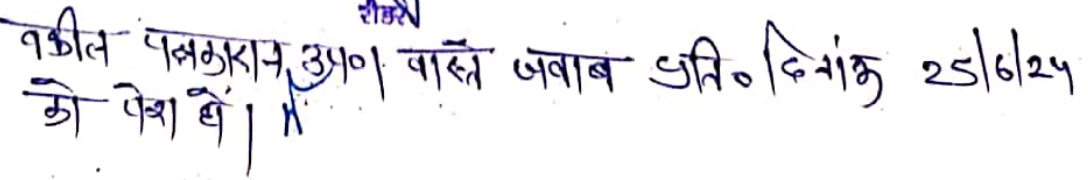 वकील पक्षकारान उप०। वास्ते जवाब प्रति० दिनांक 25/6/24
को पेश हो।